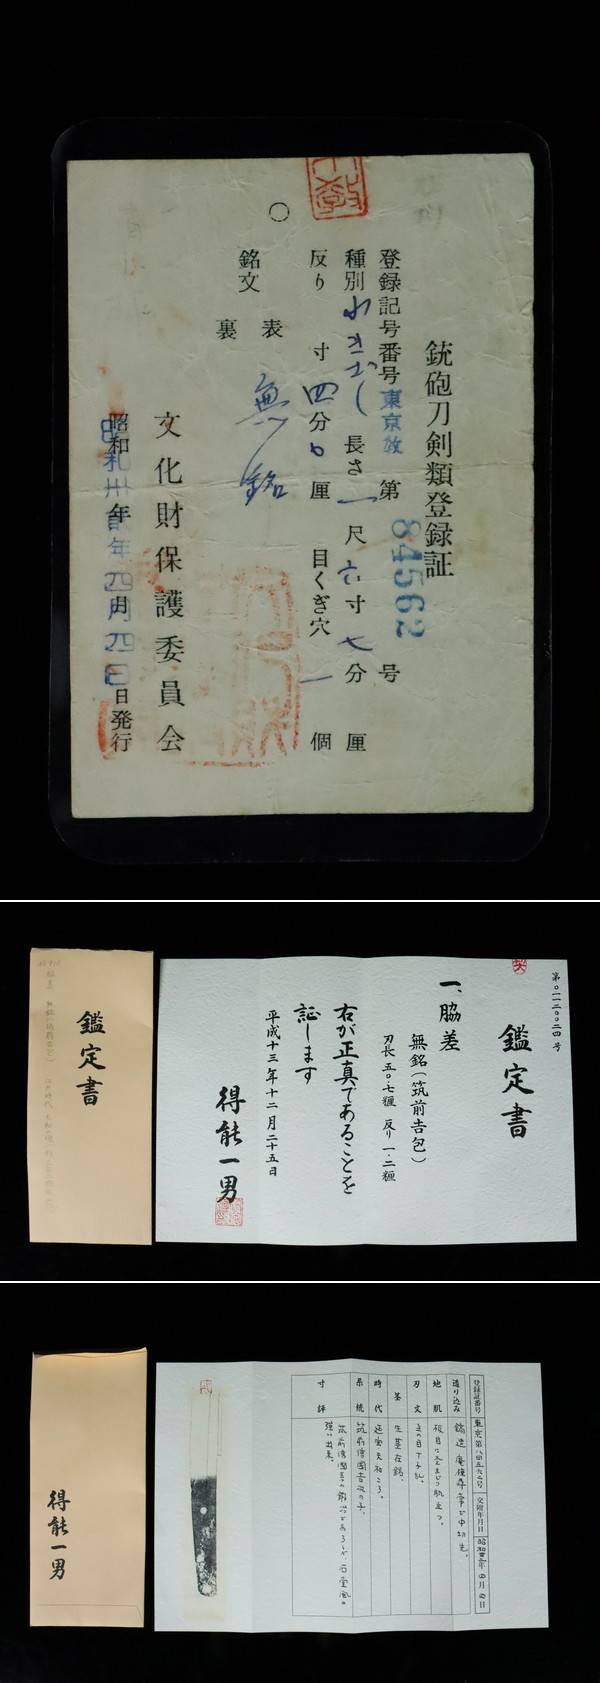 銃砲刀剣類登録証
登録記号番号 東京 第 84562 号
種別 わきざし 長さ 一尺六寸七分 厘
反り 寸四分0厘 目くぎ穴 一個
銘文 表 無銘
裏
文化財保護委員会
昭和 年四月四日発行
鑑定書
第〇一一二〇〇二四号
鑑定書
一、脇差
無銘(筑前吉包)
刃長 五〇・七糎 反り 一・二糎
右が正真であることを
証します
平成十三年十二月二十五日
得能一男
得能一男
登録証番号 東京第八四五六二号 交附年月日 昭和 年四月四日
造り込み 鎬造 庵棟尋常で中切先。
地肌 板目に杢まじり肌立つ。
刃文 互の目丁子乱。
茎 生茎在銘。
時代 延宝天和ころ。
系統 筑前信国吉次の子。
寸評 筑前信国
強い出来。